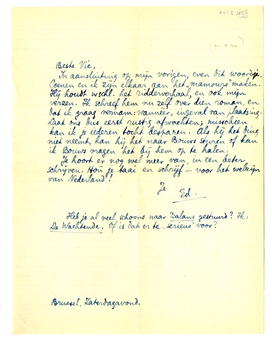 Beste Vic,
In aansluiting op mijn vorigen, even dit woordje.
Coenen en ik zijn elkaar aan het "mamours" maken.
Hij houdt v.h. ridderverhaal, en ook mijn
verzen. Ik schreef hem nu zelf over dien roman, en
dat ik graag zou: wanneer, ingeval van plaatsing.
Laat ons dus eerst rustig afwachten; misschien
kan ik je iederen tocht besparen. Als hij het ding
niet neemt, kan hij het naar Bouws sturen of kan
ik Bouws vragen het bij hem op te halen.
Je hoort er nog wel meer van, in een beter
schrijven. Hou je taai en schrijf — voor het welzijn
van Nederland!
Je
Ed.
Heb je al veel schoons naar Balans gestuurd? Bv.
De Wachtende. Of is dat er te "serieus" voor?
Brussel, Zaterdagavond.